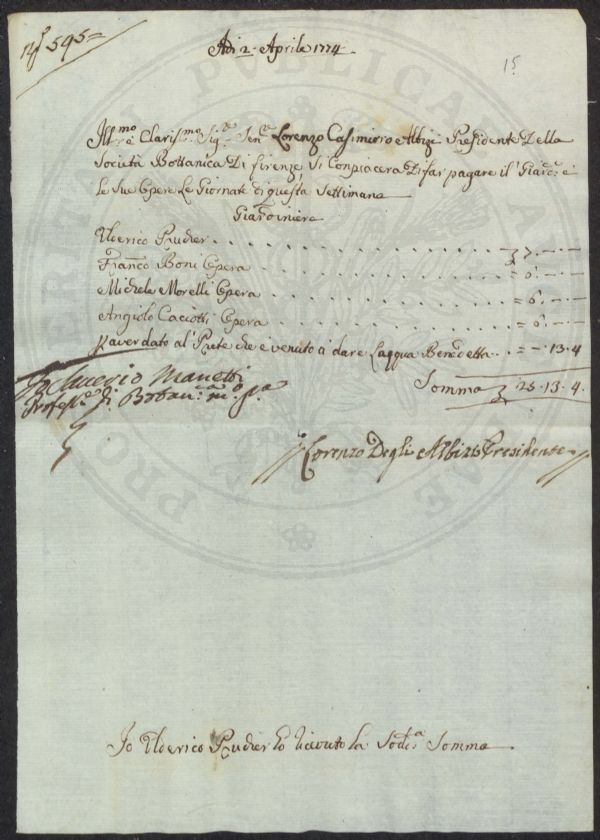 N° 595=
Adi 2. Aprile 1774.
15
Ill.mo e Claris.mo Sig.re Sen.re Lorenzo Casimirro Albizi Presidente Della
Società Bottanica Di firenze Si Conpiacera Di far pagare il Giard.e e
le Sue Opere Le Giornate di questa Settimana
Giardiniere
Ulderico Prucher . . . 7. — —
Franco Boni Opera . . . = 6. — —
Michele Morelli Opera . . . = 6. — —
Angiolo Caciotti Opera . . . = 6. — —
p averdato al Prete che è venuto a dare Lacqua Benedetta . . = — . 13. 4
Somma 25. 13. 4.
Io Saverio Manetti
Profess.e di Botan.ca m.o p.a
Lorenzo Degli Albizi Presidente
Io Ulderico Prucher ho riceuto La Sodt.a Somma